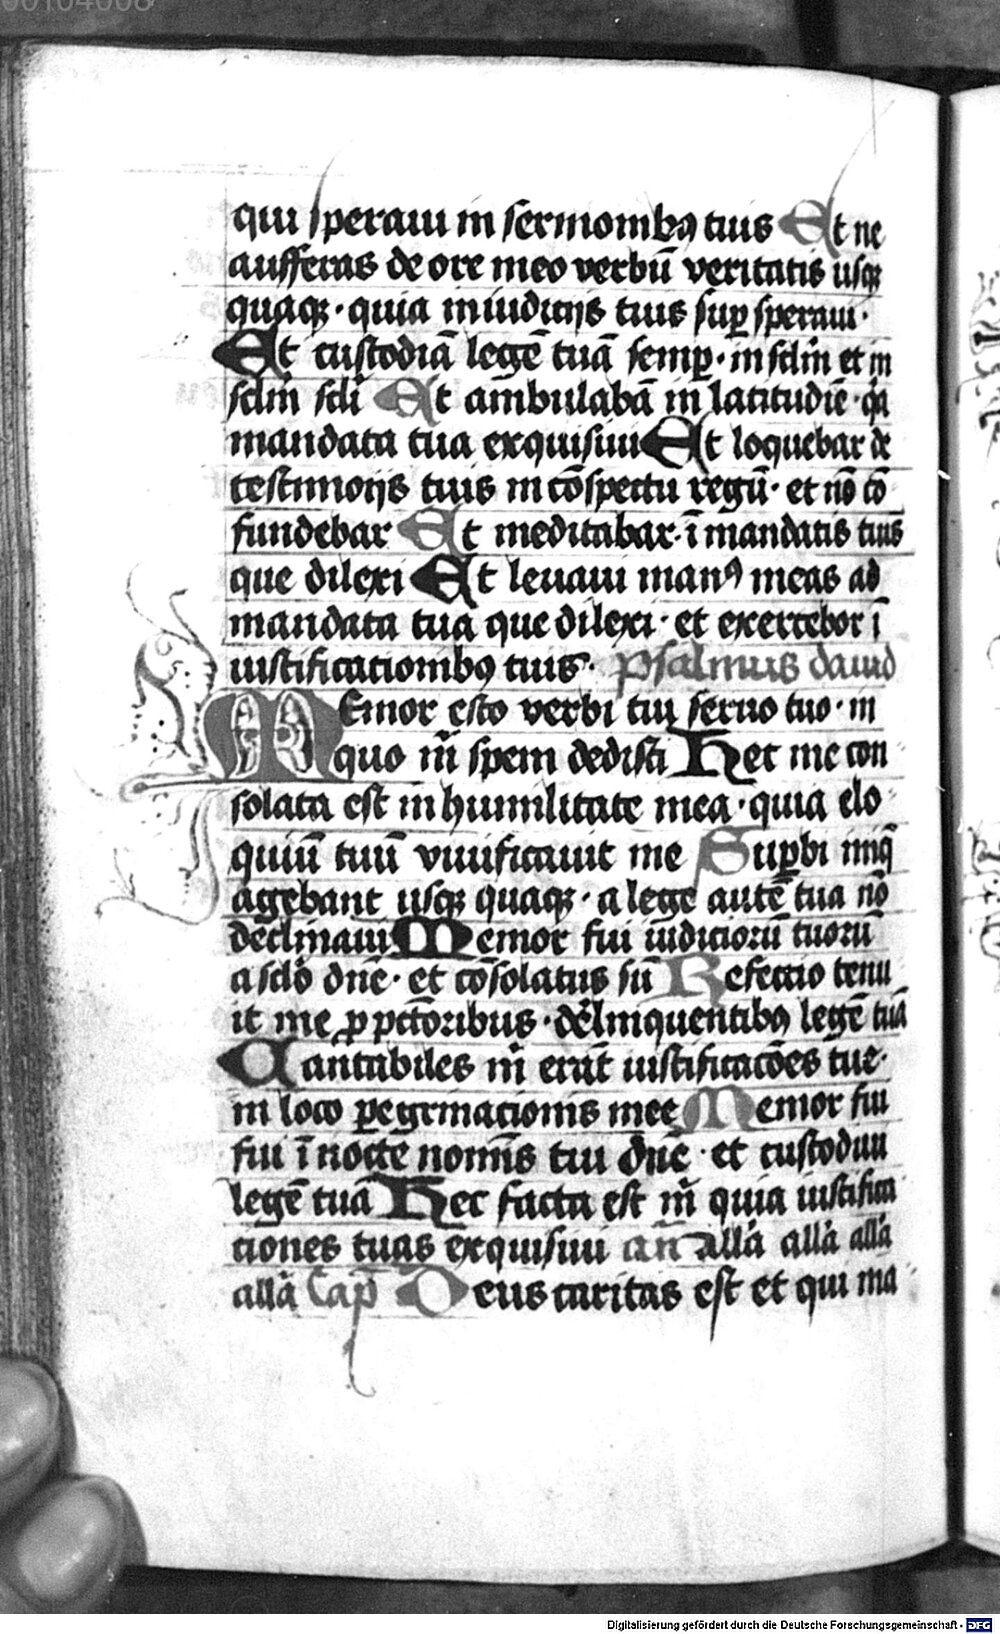 00104008
qui speraui in sermonibꝰ tuis Et ne
aufferas de ore meo verbū veritatis usqꝫ
quaqꝫ · quia in iudicijs tuis suꝑ speraui ·
Et custodiā legē tuā semꝑ · in sclm̄ et in
sclm̄ scli Et ambulabā in latitudīe · qͥa
mandata tua exquisiui Et loquebar de
testimoijs tuis in cōspectu regū · et nō cō
fundebar Et meditabar · ī mandatis tuis
que dilexi Et leuaui manꝰ meas ad
mandata tua que dilexi · et exercebor ī
iustificationibꝰ tuis · psalmus dauid
Memor esto verbi tui seruo tuo · in
quo m̄ spem dedisti Hec me con
solata est in humilitate mea · quia elo
quiū tuū viuificauit me Suꝑbi iniq̄
agebant usqꝫ quaqꝫ · a lege autē tua nō
declinaui Memor fui iudiciorū tuorū
a sclo dn̄e · et cōsolatus sū Refectio tenu
it me ꝓ pctōribus · de̅linquentibꝰ legē tuā
Cantabiles m̄ erāt iustificatōes tue ·
in loco ꝑegrinationis mee Memor fui
fui ī nocte nomīs tui dn̄e · et custodiui
legē tuā Hec facta est m̄ quia iustifica
tiones tuas exquisiui an̄ allā allā allā
allā Cap̄ Deus caritas est et qui ma
Digitalisierung gefördert durch die Deutsche Forschungsgemeinschaft - DFG